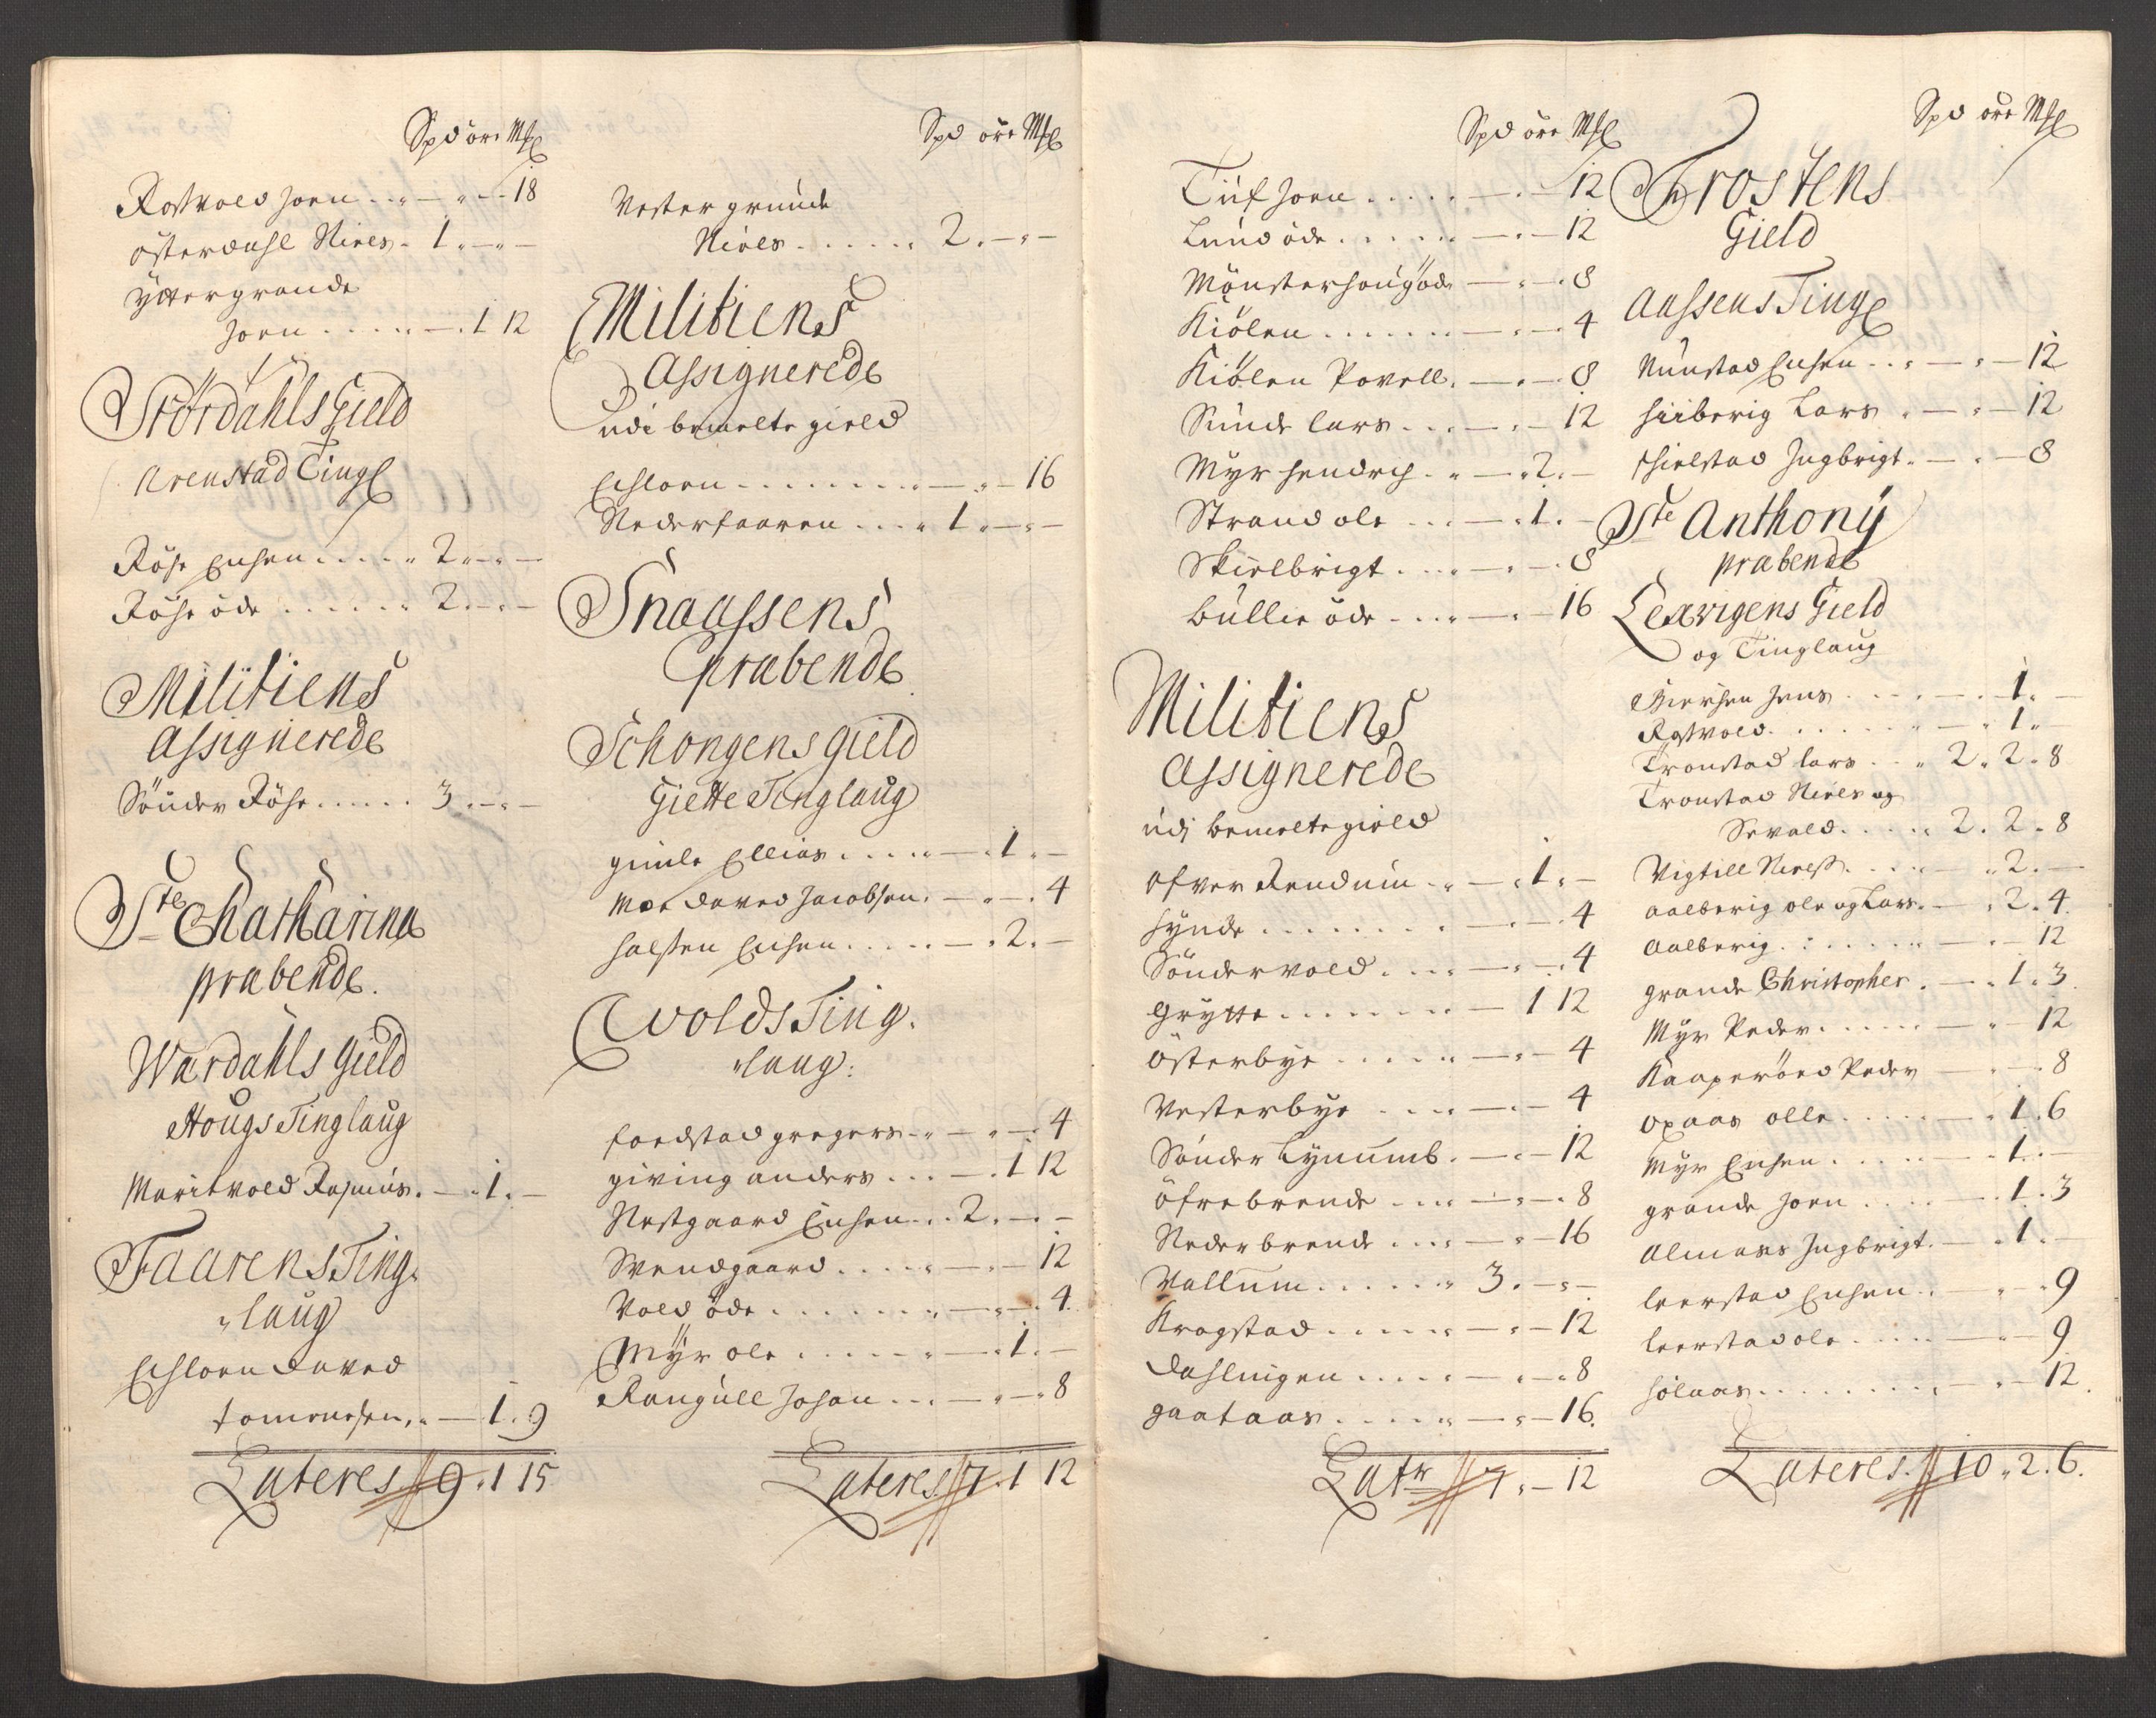 Spd öre Mk
Rostvold Joen . . „ — „ — 18
österdahl Niels . 1 „ — „ —
Yttergrande
Joen . . . . . — . 1 12
Stördahls Gield
Arenstad Ting
Röse Ensen . . . . 2 „ — „ —
Röse öde . . . . . 2 „ — „ —
Militiens
Assignerede
Sönder Röse . . . . . 3 . — „ —
Ste Chatharina
præbende.
Wardahls Gield
Hougs Tinglaug
Maritvold Rasmus . — . 1 . —
Faarens Ting-
laug
Echloen Daved
Tomesen . . — 1 . 9
Lateres 9 . 1 15
Spd öre Mk
Vestergrunde
Niels . . . . . . 2 . — „ —
Militiens
Assignerede
udi bemelte gield
Echloen . . . . . . . . — „ — 16
Nederfaaren . . . „ 1 „ — „ —
Snaassens
præbende
Schongens gield
Giette Tinglaug
gimle Ellias . . . . . — . 1 . —
Moe Daved Jacobsen . — „ — . 4
halsten Ensen . . . . . — . 2 . —
Wolds Ting-
laug:
foedstad gregers . . — „ — 4
giving anders . . . — . 1 12
Nestgaard Ensen . . 2 . — . —
Svendgaard . . . . . — . — 12
Vold öde . . . . . . . — „ — . 4
Myr ole . . . . . . — . 1 . —
Rangull Johan . . . — „ — 8
Lateres 7 . 1 12
Spd öre Mk
Tuf Joen . . . . . — . — 12
Lund öde . . . . . . — . — 12
Mönsterhoug öde — „ — . 8
Kiölen . . . . . . . — „ — . 4
Kiölen Povell . — „ — . 8
Sunde lars . . . — . — 12
Myr hendrch . „ — „ 2 . —
Strand ole . . . — . 1 . —
Skielbrigt . . . . — . — . 8
büllie öde . . . . — . — 16
Militiens
Assignerede
udj bemelte gield
ofver Rendum . . — . 1 . —
Hynde . . . . . . . . — . — . 4
Söndervold . . . . — „ — . 4
Grytte . . . . . . . — 1 12
österbye . . . . . . — „ — 4
Vesterbye . . . . . — . — 4
Sönder Lynumb . — . — 12
öfrebrende . . . . — „ — . 8
Nederbrende . . . . — „ — 16
Vallum . . . . . . „ 3 . — „ —
Kragstad . . . . . . — „ — 12
Dahlingen . . . . . — . — . 8
gaataas . . . . . . — „ — 16.
Latr 7 „ — 12
Spd öre Mk
Frostens
Gield
Aassens Ting
Munstad Ensen . . „ — „ — 12
hüberig Lars . — „ — 12
Hielstad Ingbrigt . — . — 8
Ste Anthony
præbende
Lexvigens Gield
og Tinglaug
Biersen Jens . . . . — . 1 . —
Rostvold . . . . . . „ — „ 1 „
Tronstad lars . . „ 2 „ 2 „ 8
Tronstad Niels og
Sevald . . . . . 2 . 2 . 8
Vigtill Nielss . . . . — „ 2 . —
aalberig ole og Lars . — . 2 . 4
Aalberig . . . . . . . — „ — 12
grande Christopher . — . 1 . 3
Myr Peder . . . . . — „ — 12
Kaaperöed Peder — „ — . 8
opaas olle . . . . . — . 1 . 6
Myr Ensen . . . . . — . 1 . —
grande Joen . . . . — . 1 . 3
Almaas Ingbrigt . — . 1 . —
leerstad Ensen . . — „ — 9
leerstad ole . . . . — „ — 9
hölaas . . . . . . . . — „ — 12
Lateres 10 „ 2 . 6.